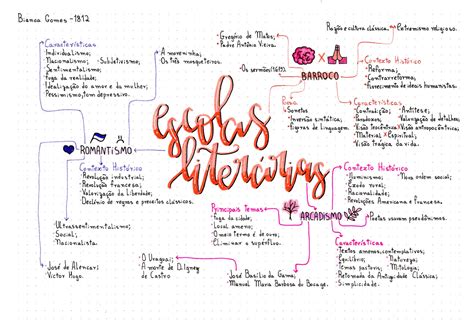 Bianca Gomes - 1812
escolas literárias
ROMANTISMO
Características
Individualismo;
Nacionalismo; Subjetivismo;
Sentimentalismo;
Fuga da realidade;
Idealização do amor e da mulher;
Pessimismo, tom depressivo.
A moreninha;
Os três mosqueteiros.
Contexto Histórico
Revolução industrial;
Revolução francesa;
Valorização da liberdade;
Declínio de regras e preceitos clássicos.
Ultrassentimentalismo;
Social;
Nacionalista.
José de Alencar;
Victor Hugo.
BARROCO
Gregório de Matos;
Padre Antônio Vieira.
Os sermões
Razão e cultura clássica.
Extremismo religioso.
Contexto Histórico
Reforma;
Contrarreforma;
Renascimento de ideais humanistas.
Prosa
Sonetos
Inversão sintática;
Figuras de linguagem
Características
Contradição; Antítese;
Paradoxos; Valorização de detalhes;
Visão teocêntrica x Visão antropocêntrica;
Material x Espiritual;
Visão trágica da vida.
ARCADISMO
Principais Temas
Fuga da cidade;
Local ameno;
Meio termo é de ouro;
Eliminar o supérfluo.
Contexto Histórico
Iluminismo; Nova ordem social;
Êxodo rural;
Racionalidade;
Revoluções Americana e Francesa.
Poetas usavam pseudônimos.
Características
Textos amenos, contemplativos;
Equilíbrio; Natureza;
Temas pastoris; Mitologia;
Retomada da Antiguidade Clássica;
Simplicidade.
O Uraguai;
A morte de
de Castro
José Basílio da Gama;
Manuel Maria Barbosa du Bocage.